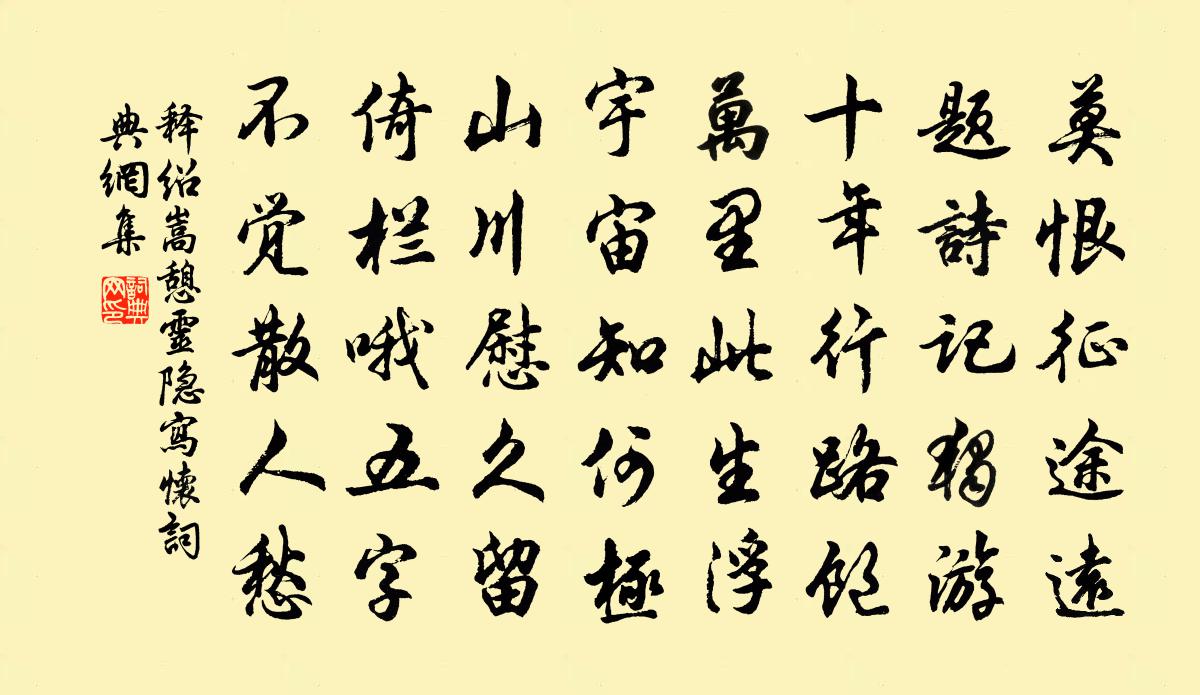 莫恨征途遠
题詩記獨游
十年行路飽
萬里此生浮
宇宙知何極
山川慰久留
倚栏哦五字
不觉散人愁
释绍嵩憩靈隐寫懷詞
典網集
詞典
网印